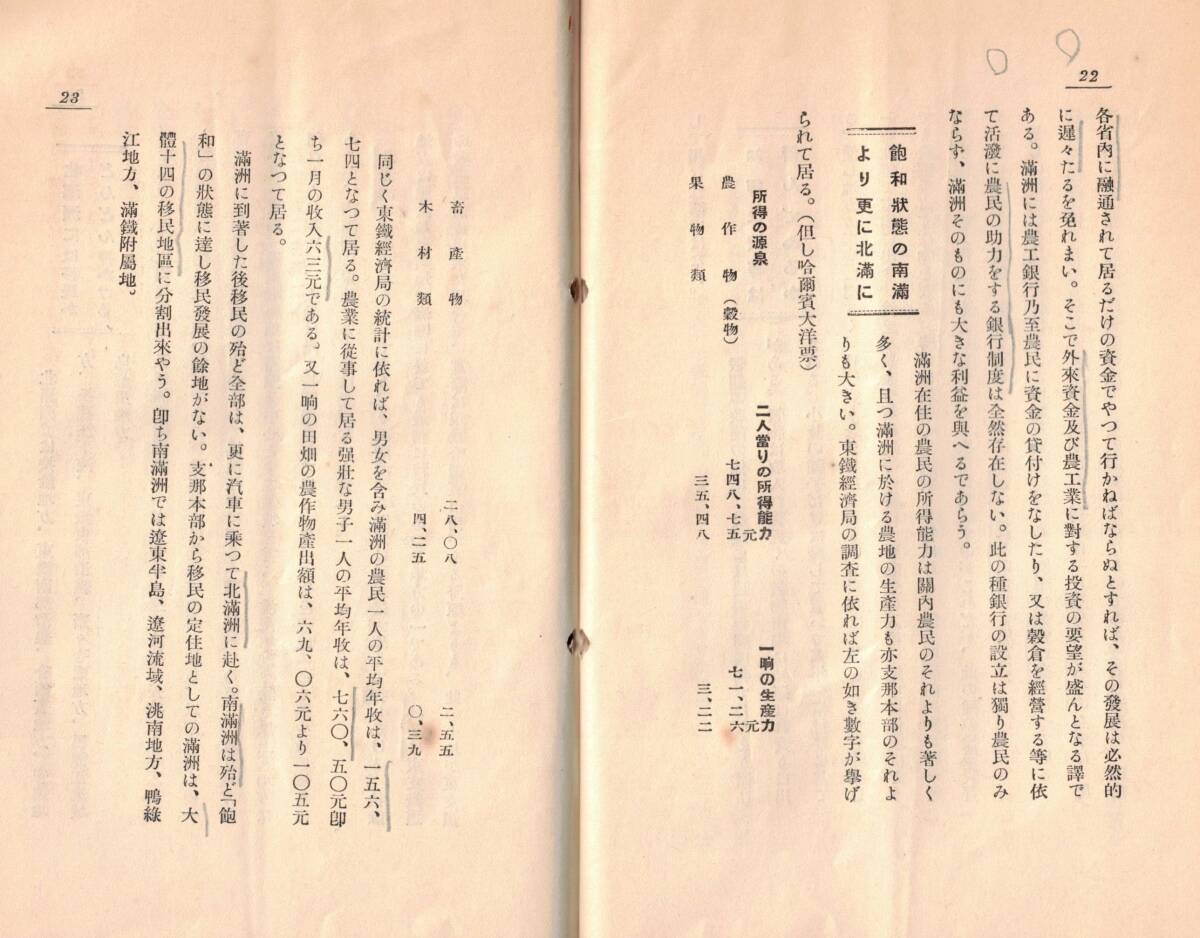 22
各省內に融通されて居るだけの資金でやつて行かねばならぬとすれば、その發展は必然的
に遲々たるを免れまい。そこで外來資金及び農工業に對する投資の要望が盛んとなる譯で
ある。滿洲には農工銀行乃至農民に資金の貸付けをなしたり、又は穀倉を經營する等に依
て活潑に農民の助力をする銀行制度は全然存在しない。此の種銀行の設立は獨り農民のみ
ならず、滿洲そのものにも大きな利益を與へるであらう。
飽和狀態の南滿
より更に北滿に
滿洲在住の農民の所得能力は關內農民のそれよりも著しく
多く、且つ滿洲に於ける農地の生產力も亦支那本部のそれよ
りも大きい。東鐵經濟局の調査に依れば左の如き數字が擧げ
られて居る。(但し哈爾賓大洋票)
所得の源泉 二人當りの所得能力 一晌の生產力
農作物(穀物) 七四八、七五元 七一、二六元
果物類 三五、四八 三、二二
畜產物 二八、〇八 二、五五
木材類 四、二五 〇、三九
同じく東鐵經濟局の統計に依れば、男女を含み滿洲の農民一人の平均年收は、一五六、
七四となつて居る。農業に從事して居る强壯な男子一人の平均年收は、七六〇、五〇元卽
ち一月の收入六三元である。又一晌の田畑の農作物產出額は、六九、〇六元より一〇五元
となつて居る。
滿洲に到著した後移民の殆ど全部は、更に汽車に乘つて北滿洲に赴く。南滿洲は殆ど「飽
和」の狀態に達し移民發展の餘地がない。支那本部から移民の定住地としての滿洲は、大
體十四の移民地區に分割出來やう。卽ち南滿洲では遼東半島、遼河流域、洮南地方、鴨綠
江地方、滿鐵附屬地。
23